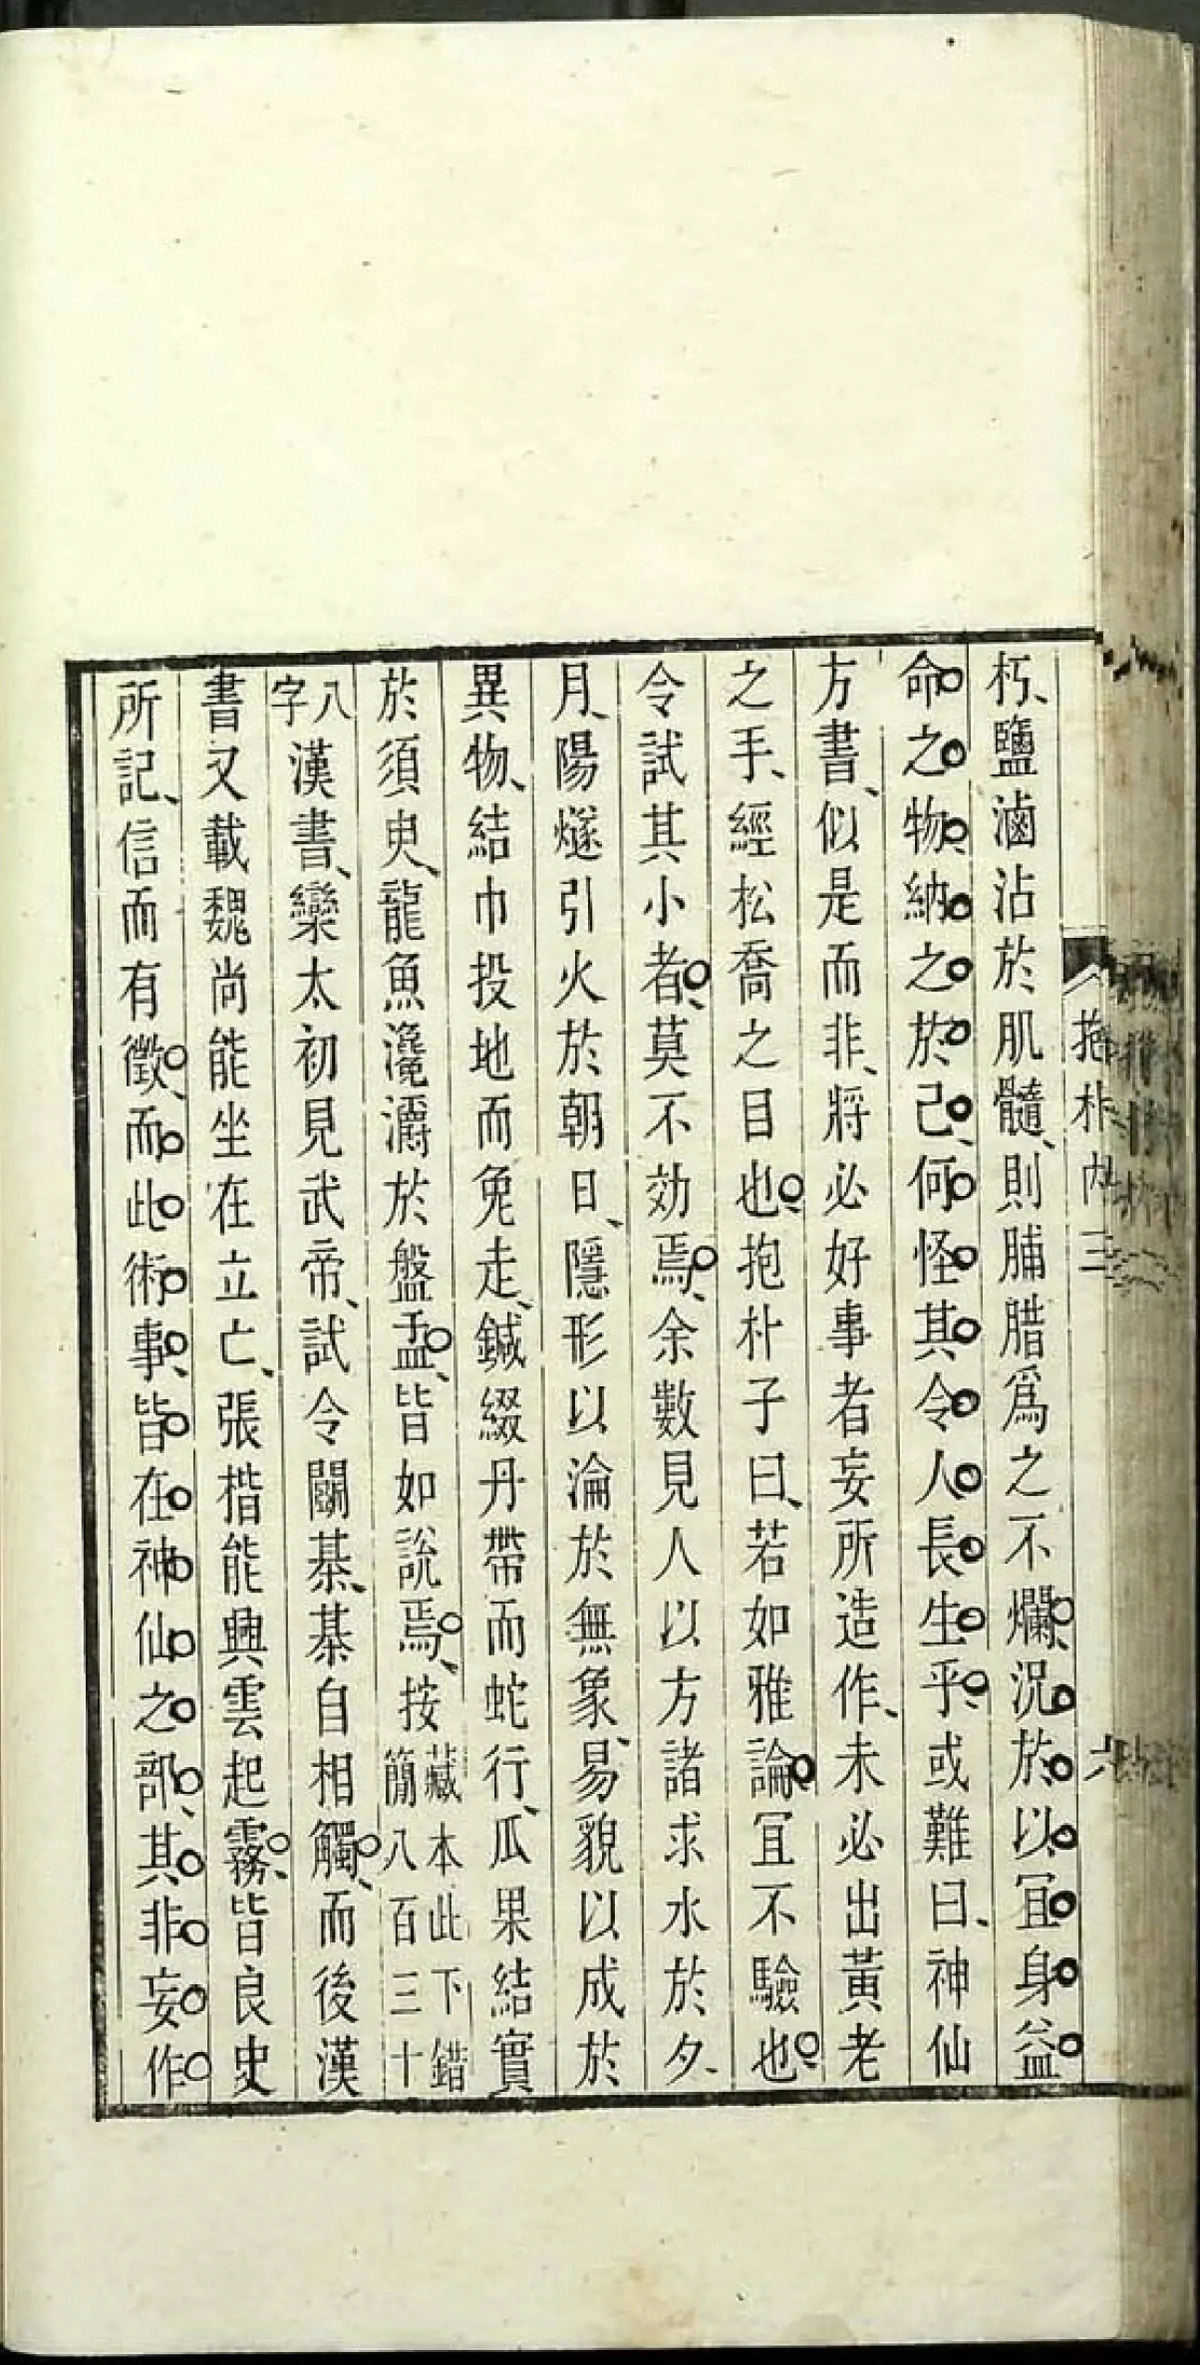 朽、鹽滷沾於肌髓、則脯腊爲之不爛、況於以宜身益
命之物、納之於己、何怪其令人長生乎、或難曰、神仙
方書、似是而非、將必好事者妄所造作、未必出黃老
之手、經松喬之目也、抱朴子曰、若如雅論、宜不驗也、
今試其小者、莫不効焉、余數見人以方諸求水於夕、
月、陽燧引火於朝日、隱形以淪於無象、易貌以成於
異物、結巾投地而兔走、鍼綴丹帶而蛇行、瓜果結實
於須臾、龍魚瀺灂於盤盂、皆如說焉、按藏本此下錯簡八百三十
八字漢書、欒太初見武帝、試令鬬棊、棊自相觸、而後漢
書又載魏尚能坐在立亡、張楷能興雲起霧、皆良史
所記、信而有徵、而此術事、皆在神仙之部、其非妄作
抱朴內三
六